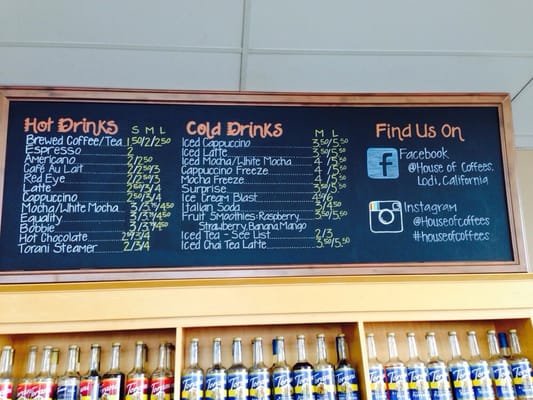 Hot Drinks
S M L
Brewed Coffee/Tea 1.50/2/2.50
Espresso 2
Americano 2/2.50
Café Au Lait 2/2.50/3
Red Eye 2/2.50/3
Latte 2.50/3/4
Cappuccino 2.50/3/4
Mocha/White Mocha 3/3.50/4.50
Equality 3/3.50/4.50
Bobbie 3/3.50/4.50
Hot Chocolate 2.50/3/4
Torani Steamer 2/3/4
Cold Drinks
M L
Iced Cappucino 3.50/5.50
Iced Latte 3.50/5.50
Iced Mocha/White Mocha 4/5.50
Cappuccino Freeze 4/5.50
Mocha Freeze 4/5.50
Surprise 3.50/5.50
Ice Cream Blast
Italian Soda
Fruit Smoothies-Raspberry, 3.50/5.50
Strawberry, Banana, Mango
Iced Tea - See List 2/3
Iced Chai Tea Latte 3.50/5.50
Find Us On
f
Facebook
@House of Coffees,
Lodi, California
Instagram
@Houseofcoffees
#houseofcoffees
TORANI